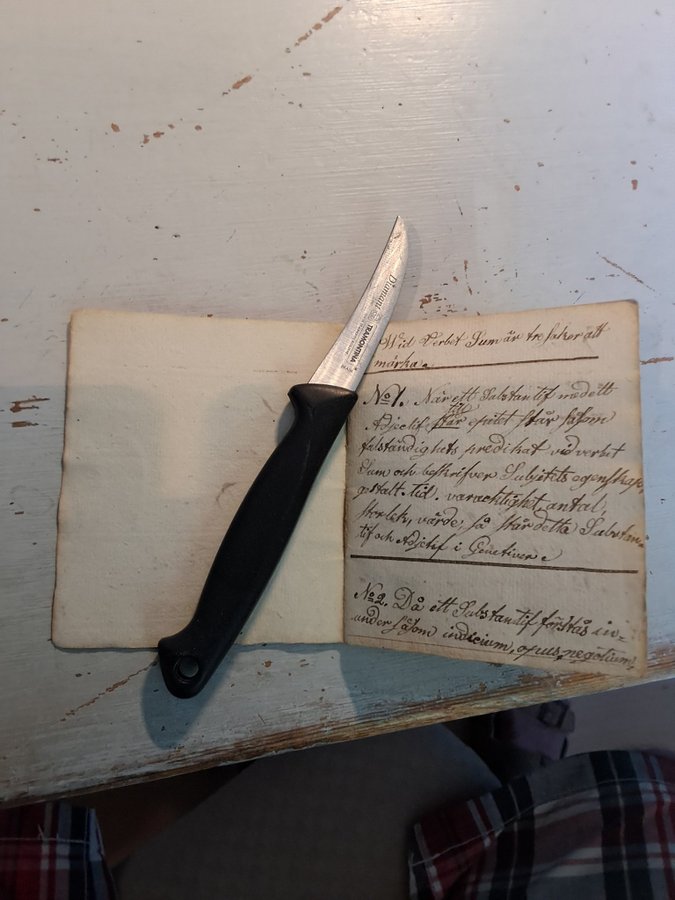 Diamant
TRAMONTINA
Wid Verbet Sum är tre saker att
märka.
No 1. När ett Substantif med ett
Adjectif till epitet står såsom
sjelfständighets predikat vid verbet
Sum och beskrifver Subjetets egenskap,
gestalt, tid, varachtighet, antal,
storlek, värde, så står detta Substan-
tif och Adjctif i Genetiven
No 2. Då ett Substantif förstås in-
under såsom indicium, opus, negotium,